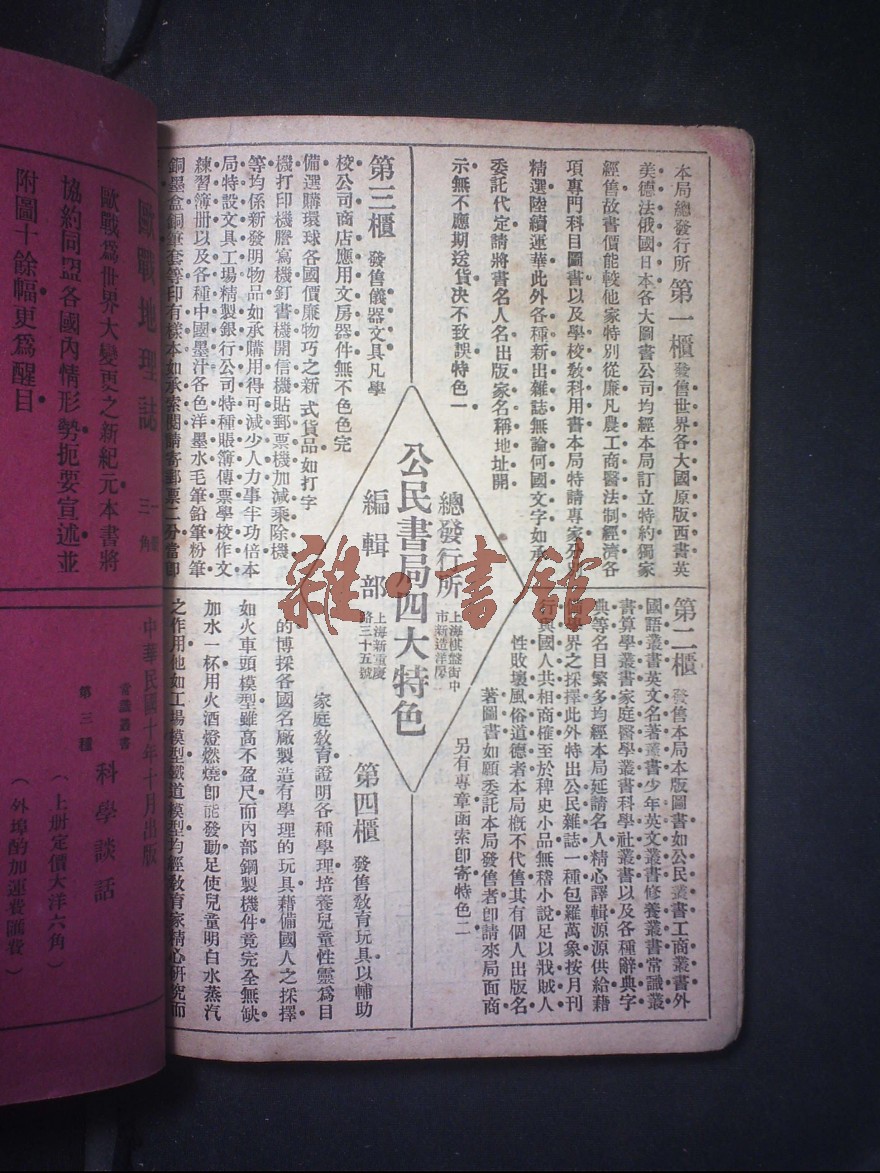 本局總發行所第一櫃發售世界各大國原版西書英
美德法俄國日本各大圖書公司均經本局訂立特約獨家
經售故書價能較他家特別從廉凡農工商醫法制經濟各
項專門科目圖書以及學校教科用書本局特請專家
精選陸續運華此外各種新出雜誌無論何國文字如承
委託代定請將書名人名出版家名稱地址開
示無不應期送貨決不致誤特色一
第二櫃發售本局本版圖書如公民叢書工商叢書外
國語叢書英文名著叢書少年英文叢書修養叢書常識叢
書算學叢書家庭醫學叢書科學社叢書以及各種辭典字
典等名目繁多均經本局延請名人精心譯輯源源供給藉
界之採擇此外特出公民雜誌一種包羅萬象按月刊
行與國人共相商榷至於稗史小品無稽小說足以戕賊人
性敗壞風俗道德者本局概不代售其有個人出版名
著圖書如願委託本局發售者卽請來局面商
另有專章函索卽寄特色二
公民書局四大特色
總發行所
上海棋盤街中
市新造洋房
編輯部
上海新重慶
路三十五號
第三櫃發售儀器文具凡學
校公司商店應用文房器件無不色色完
備選購環球各國價廉物巧之新式貨品如打字
機打印機謄寫機釘書機開信機貼郵票機加減乘除機
等均係新發明物品如承購用得可減少人力事半功倍本
局特設文具工場精製銀行公司特種賬簿傳票學校作文
練習簿册以及各種中國墨汁各色洋墨水毛筆鉛筆粉筆
銅墨盒銅筆套等印有樣本如承索閱請寄郵票二分當卽
第四櫃發售教育玩具以輔助
家庭教育證明各種學理培養兒童性靈爲目
的博採各國名廠製造有學理的玩具藉備國人之採擇
如火車頭模型雖高不盈尺而內部鋼製機件竟完全無缺
加水一杯用火酒燈燃燒卽能發動足使兒童明白水蒸汽
之作用他如工場模型鐵道模型均經教育家精心研究而
歐戰地理誌
三角
歐戰爲世界大變更之新紀元本書將
協約同盟各國內情形勢扼要宣述並
附圖十餘幅更爲醒目
中華民國十年十月出版
常識叢書
第三種
科學談話
（上册定價大洋六角）
（外埠酌加運費匯費）
雜·書館